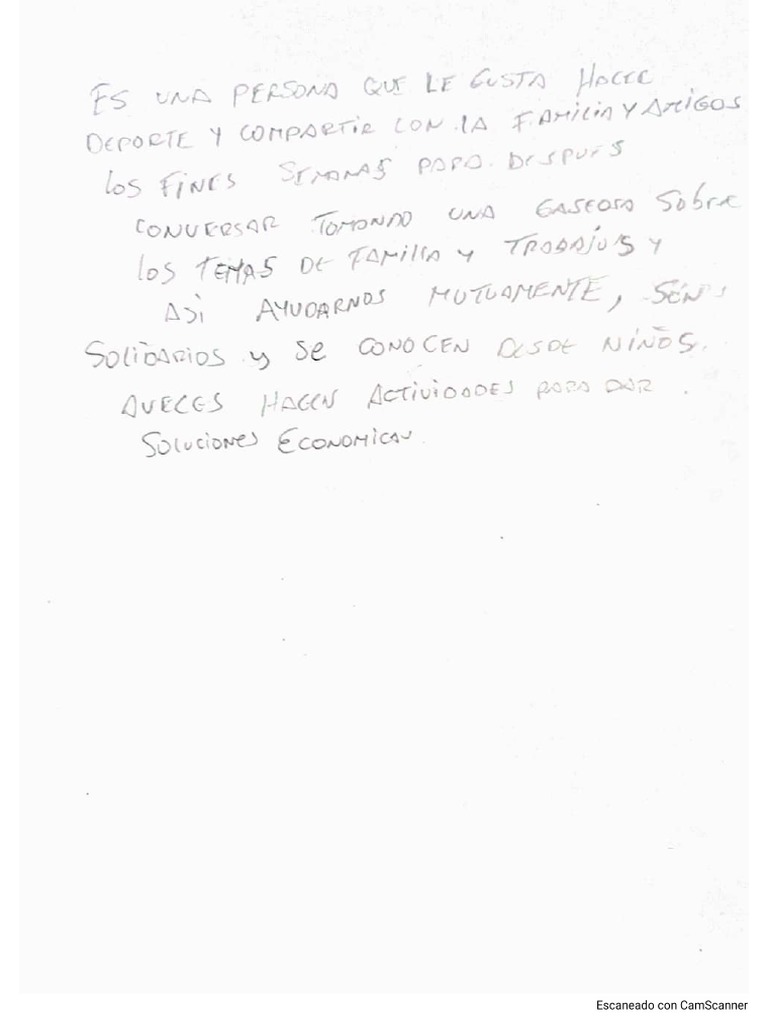 ES UNA PERSONA QUE LE GUSTA HACER
DEPORTE Y COMPARTIR CON LA FAMILIA Y AMIGOS
LOS FINES SEMANAS PARA DESPUES
CONVERSAR TOMANDO UNA GASEOSA SOBRE
LOS TEMAS DE FAMILIA Y TRABAJOS Y
ASÍ AYUDARNOS MUTUAMENTE,
SOLIDARIOS Y SE CONOCEN DESDE NIÑOS.
AVECES HACEN ACTIVIDADES PARA DAR
SOLUCIONES ECONOMICAS.
Escaneado con CamScanner